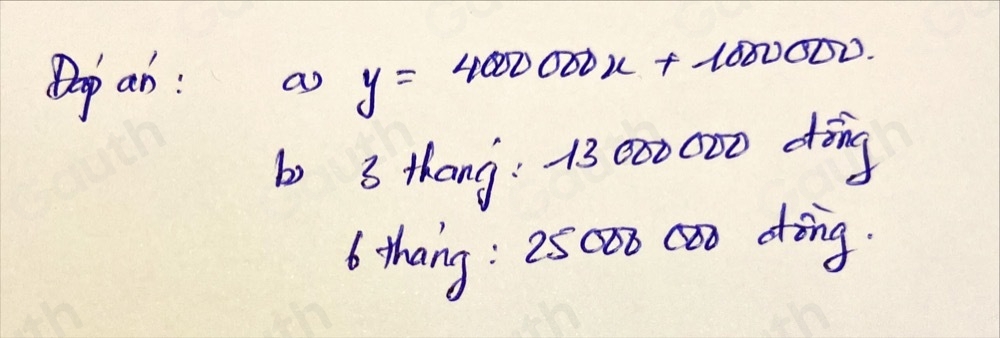 Đáp án: a) y = 4000 000x + 1000 000.
b) 3 tháng: 13 000 000 đồng
6 tháng: 25 000 000 đồng.